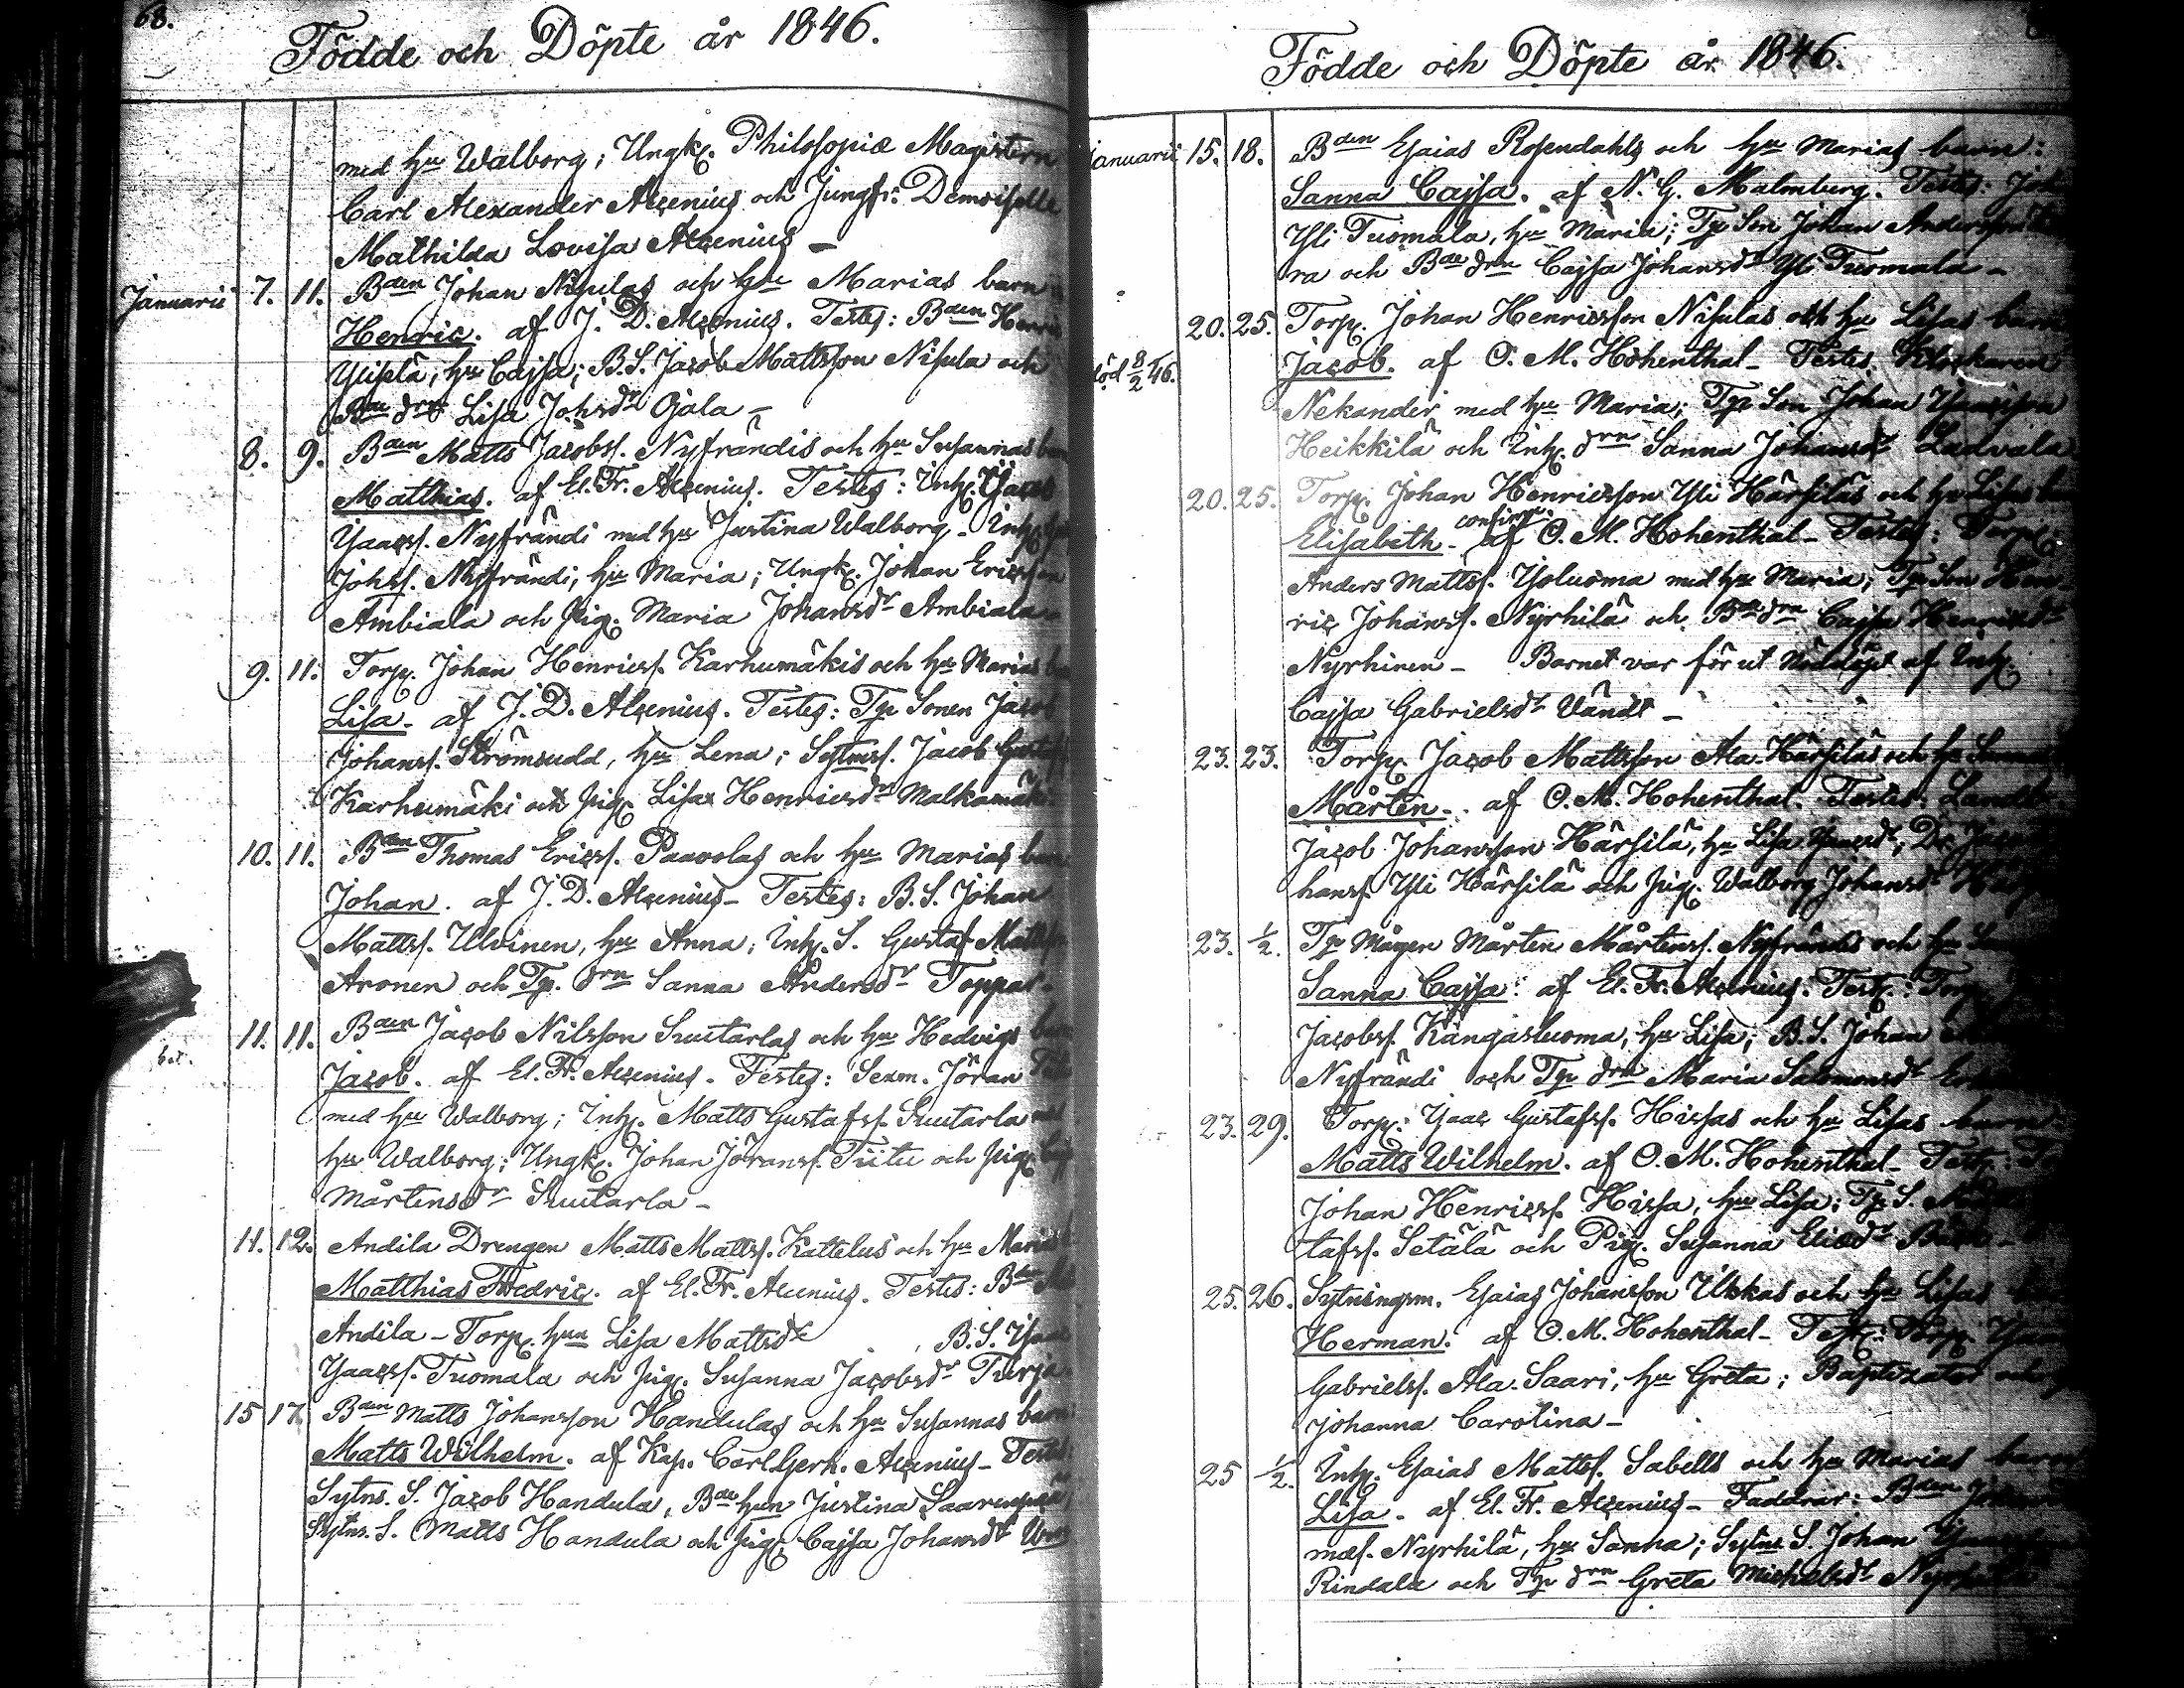 68.
Födde och Döpte år 1846.
med hu Walborg; Ungk. Philosopiæ Magistern
Carl Alexander Alcenius och Jungfr: Demoiselle
Mathilda Lovisa Alcenius –
Januarii 7. 11. Bden Johan Nisulas och hu Marias barn
Henric. af J. D. Alcenius. Testes: Bden Henric
Ylipelä, hu Cajsa; B.S. Jacob Mattsson Nisula och
Bde drn Lisa Johsdr Ojala –
8. 9. Bden Matts Jacobss. Nyfrändis och hu Susannas
Matthias. af El. Fr. Alcenius. Testes: Inh.
Isacss. Nyfrändi med hu Justina Walborg – Inh.
Johss. Nyfrändi, hu Maria; Ungk. Johan Ericsson
Ambiala och pig. Maria Johansdr Ambiala –
9. 11. Torp. Johan Henricss. Karhumäkis och hu Marias
Lisa. af J. D. Alcenius. Testes: Tp Sonen Jacob
Johanss. Strömsudd, hu Lena; Sytnss. Jacob
Karhumäki och pig. Lisa Henricsdr Malkamäki
10. 11. Bden Thomas Ericss. Paavolas och hu Marias barn
Johan. af J. D. Alcenius – Testes: B.S. Johan
Mattss. Ulvinen, hu Anna; Inh. S. Gustaf Mattss
Aronen och Tp. drn Sanna Andersdr Toppar.
11. 11. Bden Jacob Nilsson Suutarlas och hu Hedvigs
Jacob. af El. Fr. Alcenius. Testes: Sexm. Jöran
med hu Walborg; Inh. Matts Gustafss. Suutarla med
hu Walborg; Ungk. Johan Jöranss. Tiitu och pig.
Mårtensdr Suutarla –
11. 12. Andila Drengen Matts Mattss. Kattelus och hu
Matthias Fredric. af El. Fr. Alcenius. Testes: Bden
Andila – Torp. hun Lisa Mattsdr , B.S.
Isacss. Tuomala och pig. Susanna Jacobsdr Turja
15 17. Bden Matts Johansson Handulas och hu Susannas barn
Matts Wilhelm. af Kap. Carl Gerh. Alcenius – Testes
Sytns. S. Jacob Handula, Bde hun Justina Saarenpää
Sytns. S. Matts Handula och pig. Cajsa Johansdr
Födde och Döpte år 1846.
Januarii 15. 18. Bden Esaias Rosendahls och hu Marias barn:
Sanna Cajsa. af N. G. Malmberg. Testes:
Yli Tuomala, hu Maria; Tp Son Johan Andersson
ra och Bde drn Cajsa Johansdr Yli Tuomala –
20. 25. Torp. Johan Henricsson Nisulas och hu Lisas barn
död 8/2 46. Jacob. af O. M. Hohenthal – Testes: Klockaren
Nekander med hu Maria; Tp Son Johan Isacsson
Heikkilä och Inh. drn Sanna Johansdr Ladvala
20. 25. Torp. Johan Henricsson Yli Härsiläs och hu Lisas
confirm.
Elisabeth. af O. M. Hohenthal – Testes: Torp.
Anders Mattss. Yoluoma med hu Maria; Tp Son Hen
ric Johanss. Nyrhilä och Bde drn Cajsa Henricsdr
Nyrhinen – Barnet var förut Nöddöpt af Inh.
Cajsa Gabrielsdr Vändt –
23. 23. Torp. Jacob Mattsson Ala Härsiläs och hu
Mårten. af O. M. Hohenthal. Testes:
Jacob Johansson Härsilä, hu Lisa; Dr
hanss. Yli Härsilä och pig. Walborg Johansdr
23. 1/2. Tp Mågen Mårten Mårtenss. Nyfrändis och hu
Sanna Cajsa. af El. Fr. Alcenius. Test.: Torp
Jacobss. Kangasluoma, hu Lisa; B.S. Johan
Nyfrändi och Tp drn Maria Salomonsdr
23. 29. Torp. Isac Gustafss. Hissas och hu Lisas barn
Matts Wilhelm. af O. M. Hohenthal – Test.:
Johan Henricss. Hissa, hu Lisa; Tp S.
tafss. Setälä och Pig. Susanna Eliædr
25. 26. Sytningsm. Esaias Johansson Uskas och hu Lisas
Herman. af O. M. Hohenthal – Test.: Torp
Gabrielss. Ala Saari, hu Greta; Baptizator och
Johanna Carolina –
25 1/2. Inh. Esaias Mattss. Sabells och hu Marias barn
Lisa. af El. Fr. Alcenius – Faddrar: Bden
mass. Nyrhilä, hu Sanna; Sytns S. Johan
Rindala och Tp drn Greta Michelsdr